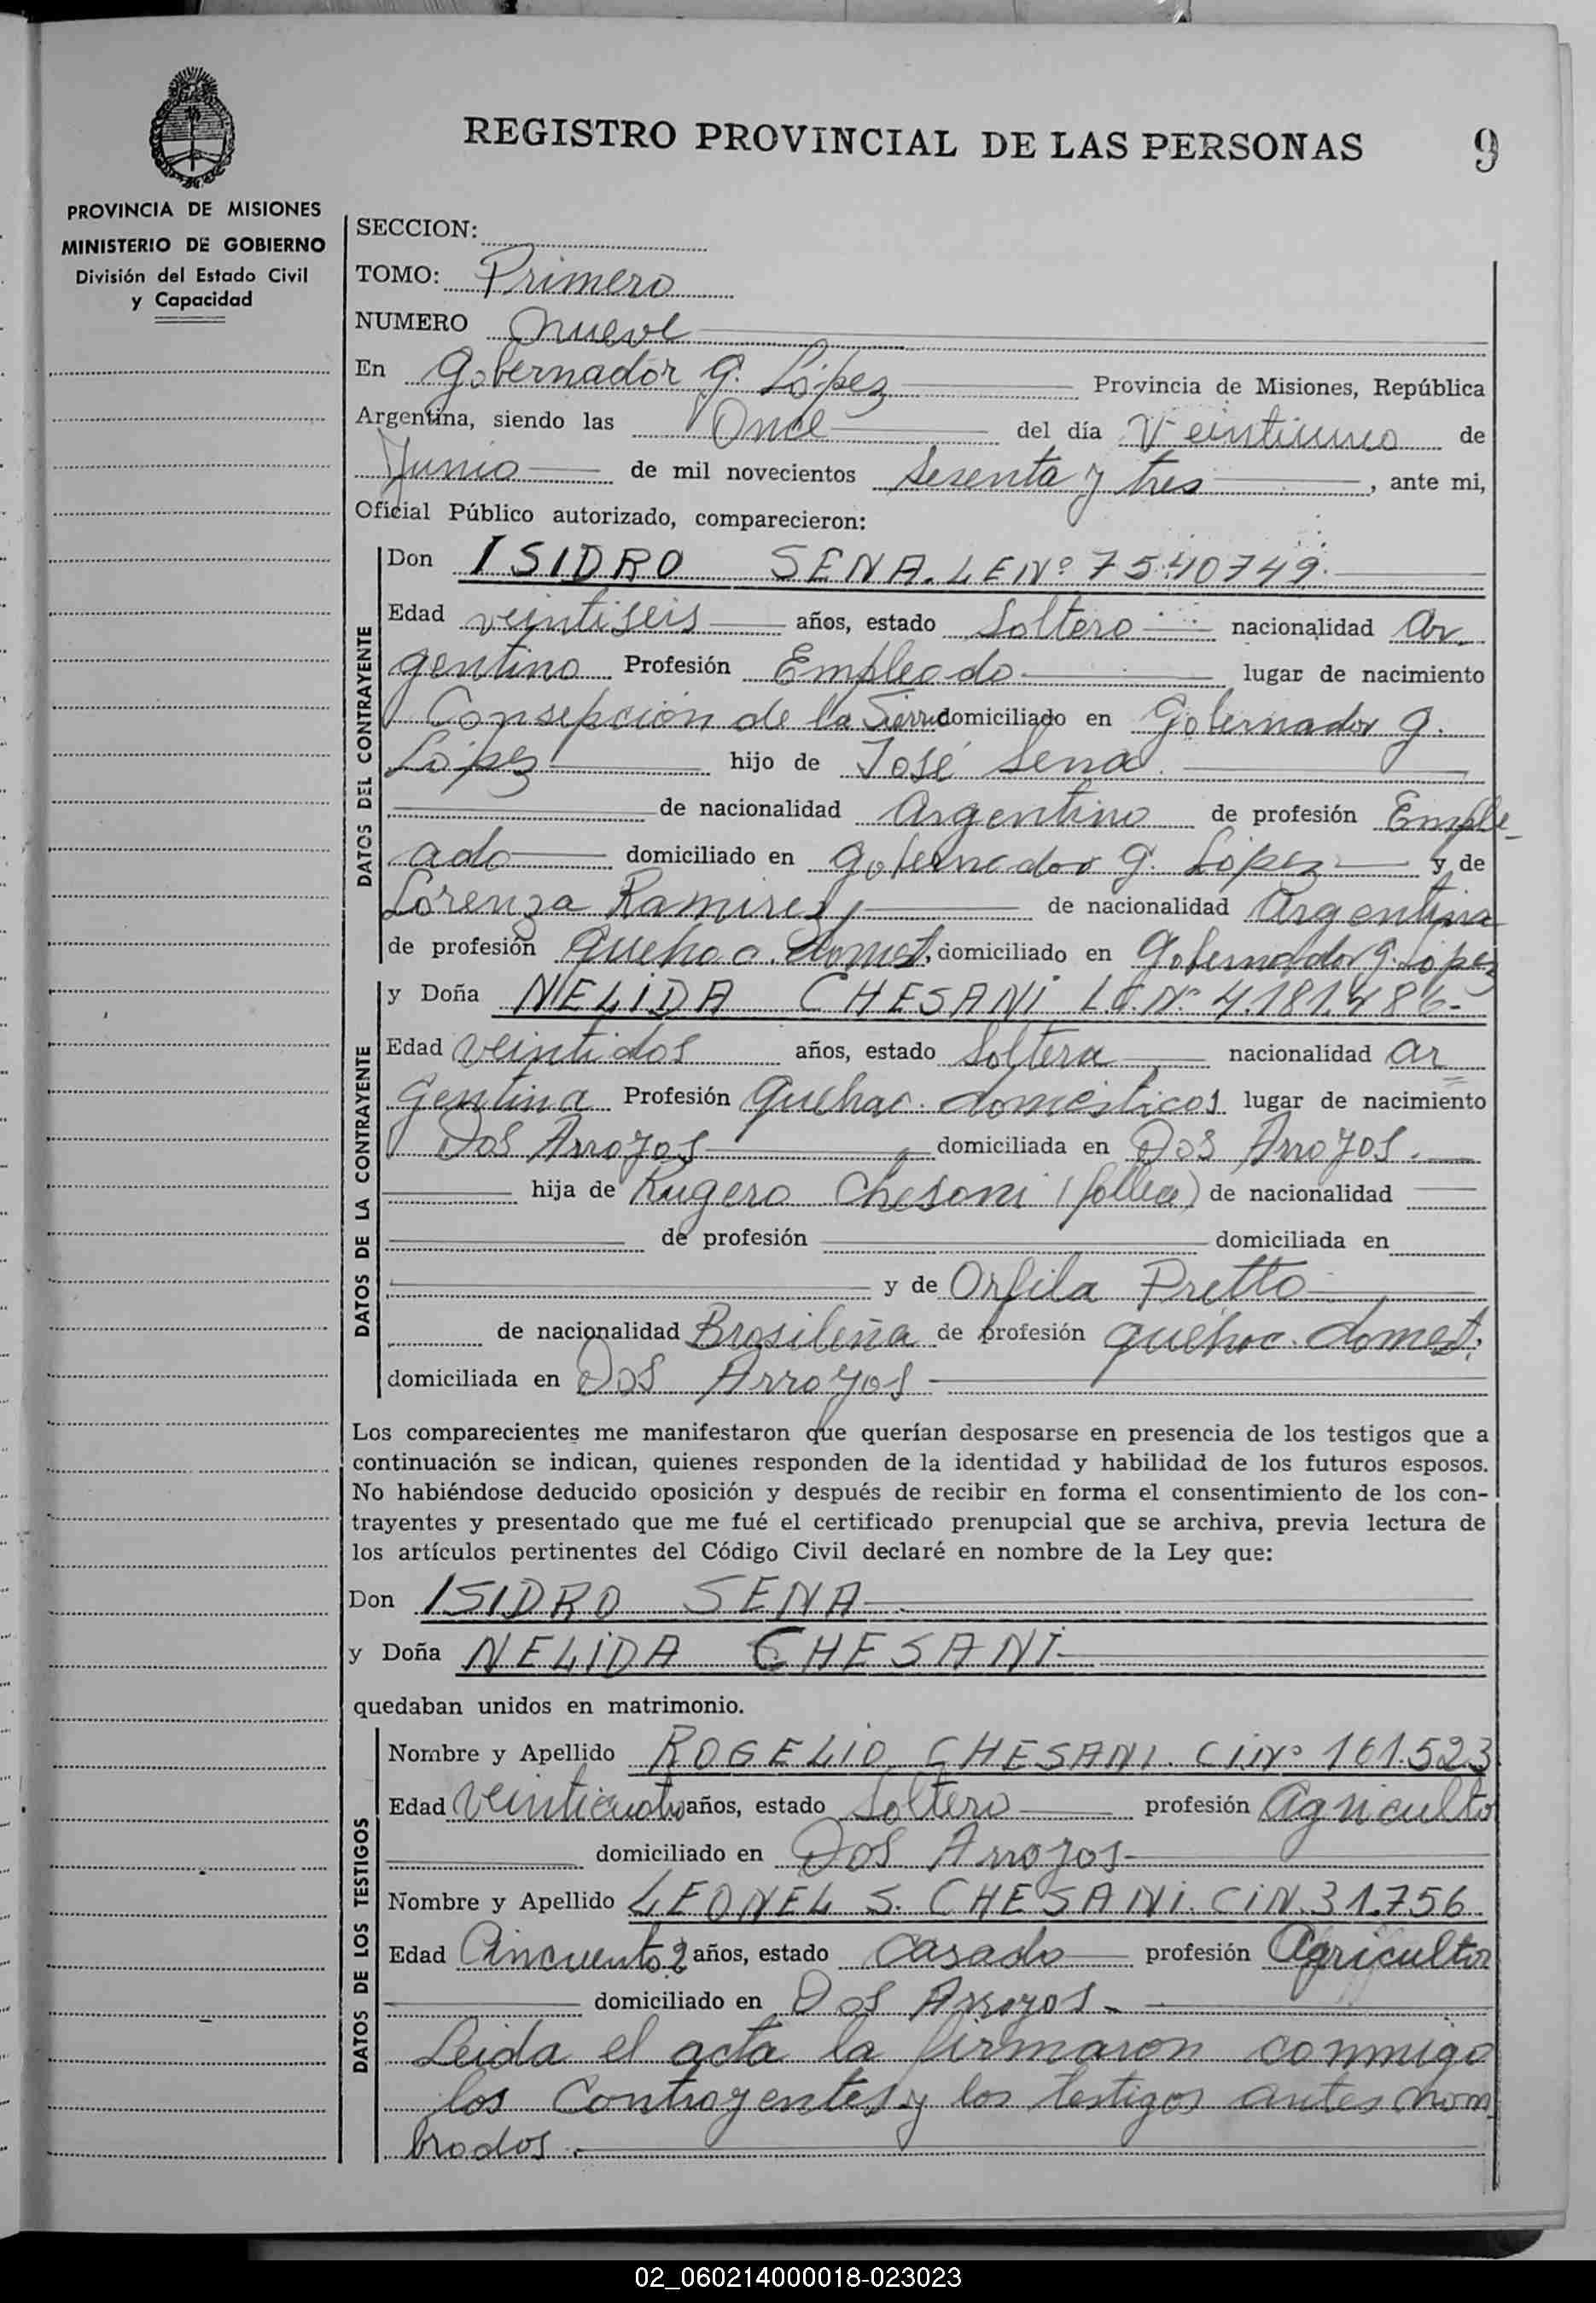 REGISTRO PROVINCIAL DE LAS PERSONAS 9
PROVINCIA DE MISIONES
MINISTERIO DE GOBIERNO
División del Estado Civil
y Capacidad
SECCION:
TOMO: Primero
NUMERO nueve
En Gobernador G. López Provincia de Misiones, República
Argentina, siendo las Once del día Veintiuno de
Junio de mil novecientos Sesenta y tres, ante mi,
Oficial Público autorizado, comparecieron:
DATOS DEL CONTRAYENTE
Don ISIDRO SENA. LE Nº 7540749.
Edad veintiseis años, estado Soltero nacionalidad Ar
gentino Profesión Empleado lugar de nacimiento
Consepción de la Sierra domiciliado en Gobernador G.
López hijo de José Sena.
de nacionalidad Argentino de profesión Emple-
ado domiciliado en Gobernador G. López y de
Lorenza Ramirez de nacionalidad Argentina
de profesión Quehac. domest, domiciliado en Gobernador G. López
DATOS DE LA CONTRAYENTE
y Doña NELIDA CHESANI L.C. Nº 4.181.486-
Edad veintidos años, estado Soltera nacionalidad Ar
gentina Profesión Quehac. domesticos lugar de nacimiento
Dos Arroyos domiciliada en Dos Arroyos.
hija de Rugero Chesani (follec) de nacionalidad
de profesión domiciliada en
y de Orfila Pretto
de nacionalidad Brasileña de profesión quehac. domest.
domiciliada en Dos Arroyos
Los comparecientes me manifestaron que querían desposarse en presencia de los testigos que a
continuación se indican, quienes responden de la identidad y habilidad de los futuros esposos.
No habiéndose deducido oposición y después de recibir en forma el consentimiento de los con-
trayentes y presentado que me fué el certificado prenupcial que se archiva, previa lectura de
los artículos pertinentes del Código Civil declaré en nombre de la Ley que:
Don ISIDRO SENA
y Doña NELIDA CHESANI
quedaban unidos en matrimonio.
DATOS DE LOS TESTIGOS
Nombre y Apellido ROGELIO CHESANI. CI Nº 161.523
Edad Veinticuatro años, estado Soltero profesión Agriculto
domiciliado en Dos Arroyos-
Nombre y Apellido LEONEL S. CHESANI. CIN. 31.756
Edad Cincuenta 2 años, estado Casado profesión Agricultor
domiciliado en Dos Arroyos-
Leida el acta la firmaron conmigo
los Contrayentes y los testigos antes nom
brados.
02_060214000018-023023